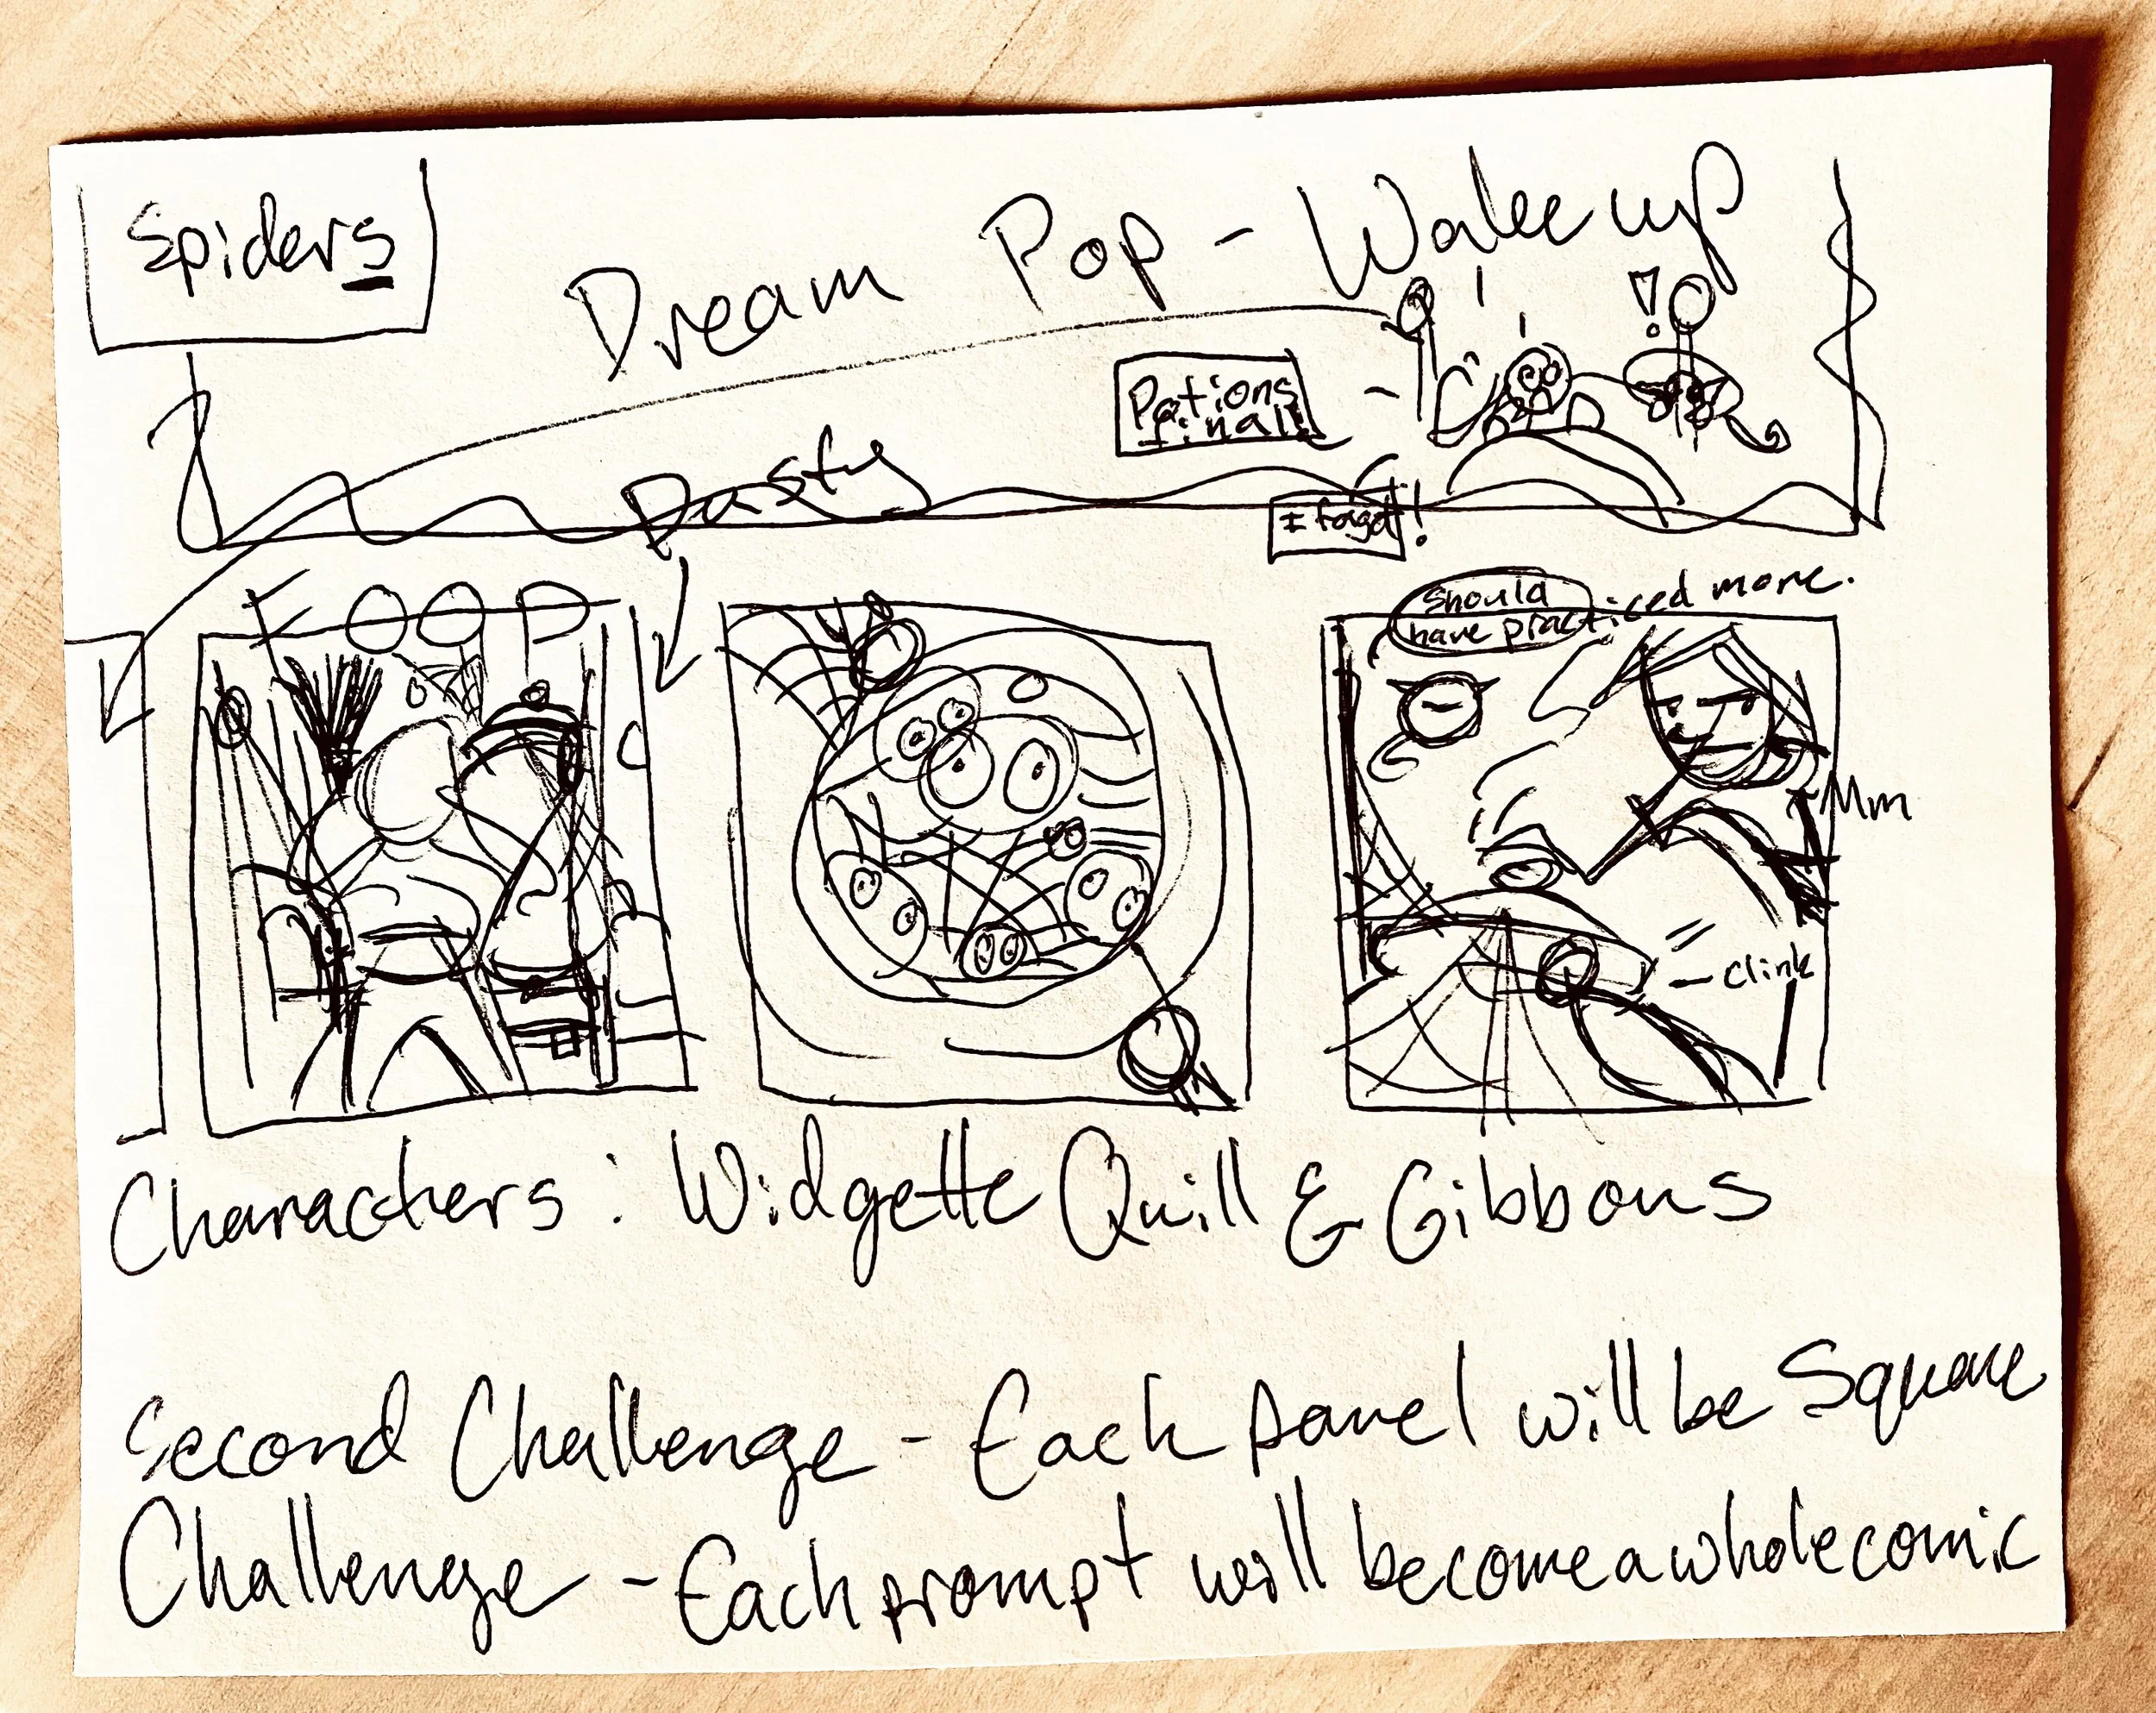 Spiders
Dream Pop - Wake up
! !
Potions
final!
Dusty
I forgot!
FOOP
Should
have practiced more.
Mm
- clink
Characters: Widgette Quill & Gibbons
Second Challenge - Each panel will be Square
Challenge - Each prompt will become a whole comic